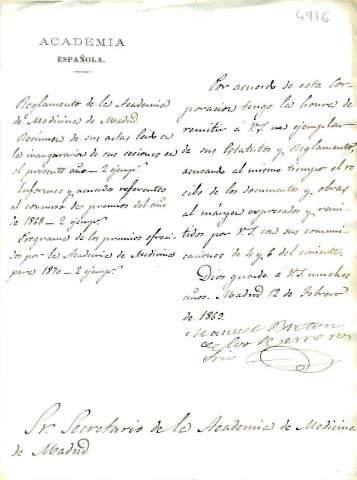 4916
ACADEMIA
ESPAÑOLA.
Reglamento de la Academia
de Medicina de Madrid
Resúmen de sus actas leido en
la inauguracion de sus sesiones en
el presente año - 2 ejempˢ
Informes y acuerdo referentes
al concurso de premios del año
de 1868 - 2 ejempˢ
Programa de los premios ofreci-
dos por la Academia de Medicina
para 1870 - 2 ejempˢ
Por acuerdo de esta Cor-
poracion tengo la honra de
remitir á V.S. un ejemplar
de sus Estatutos y Reglamento,
acusando al mismo tiempo el re-
cibo de los documentos y obras
al márgen expresados y remi-
tidos por V.S. con sus comuni-
caciones de 4 y 6 del corriente.
Dios guarde á V.S. muchos
años. Madrid 12 de Febrero
de 1869.
Manuel Breton
de los Herreros
Srio
Sr. Secretario de la Academia de Medicina
de Madrid